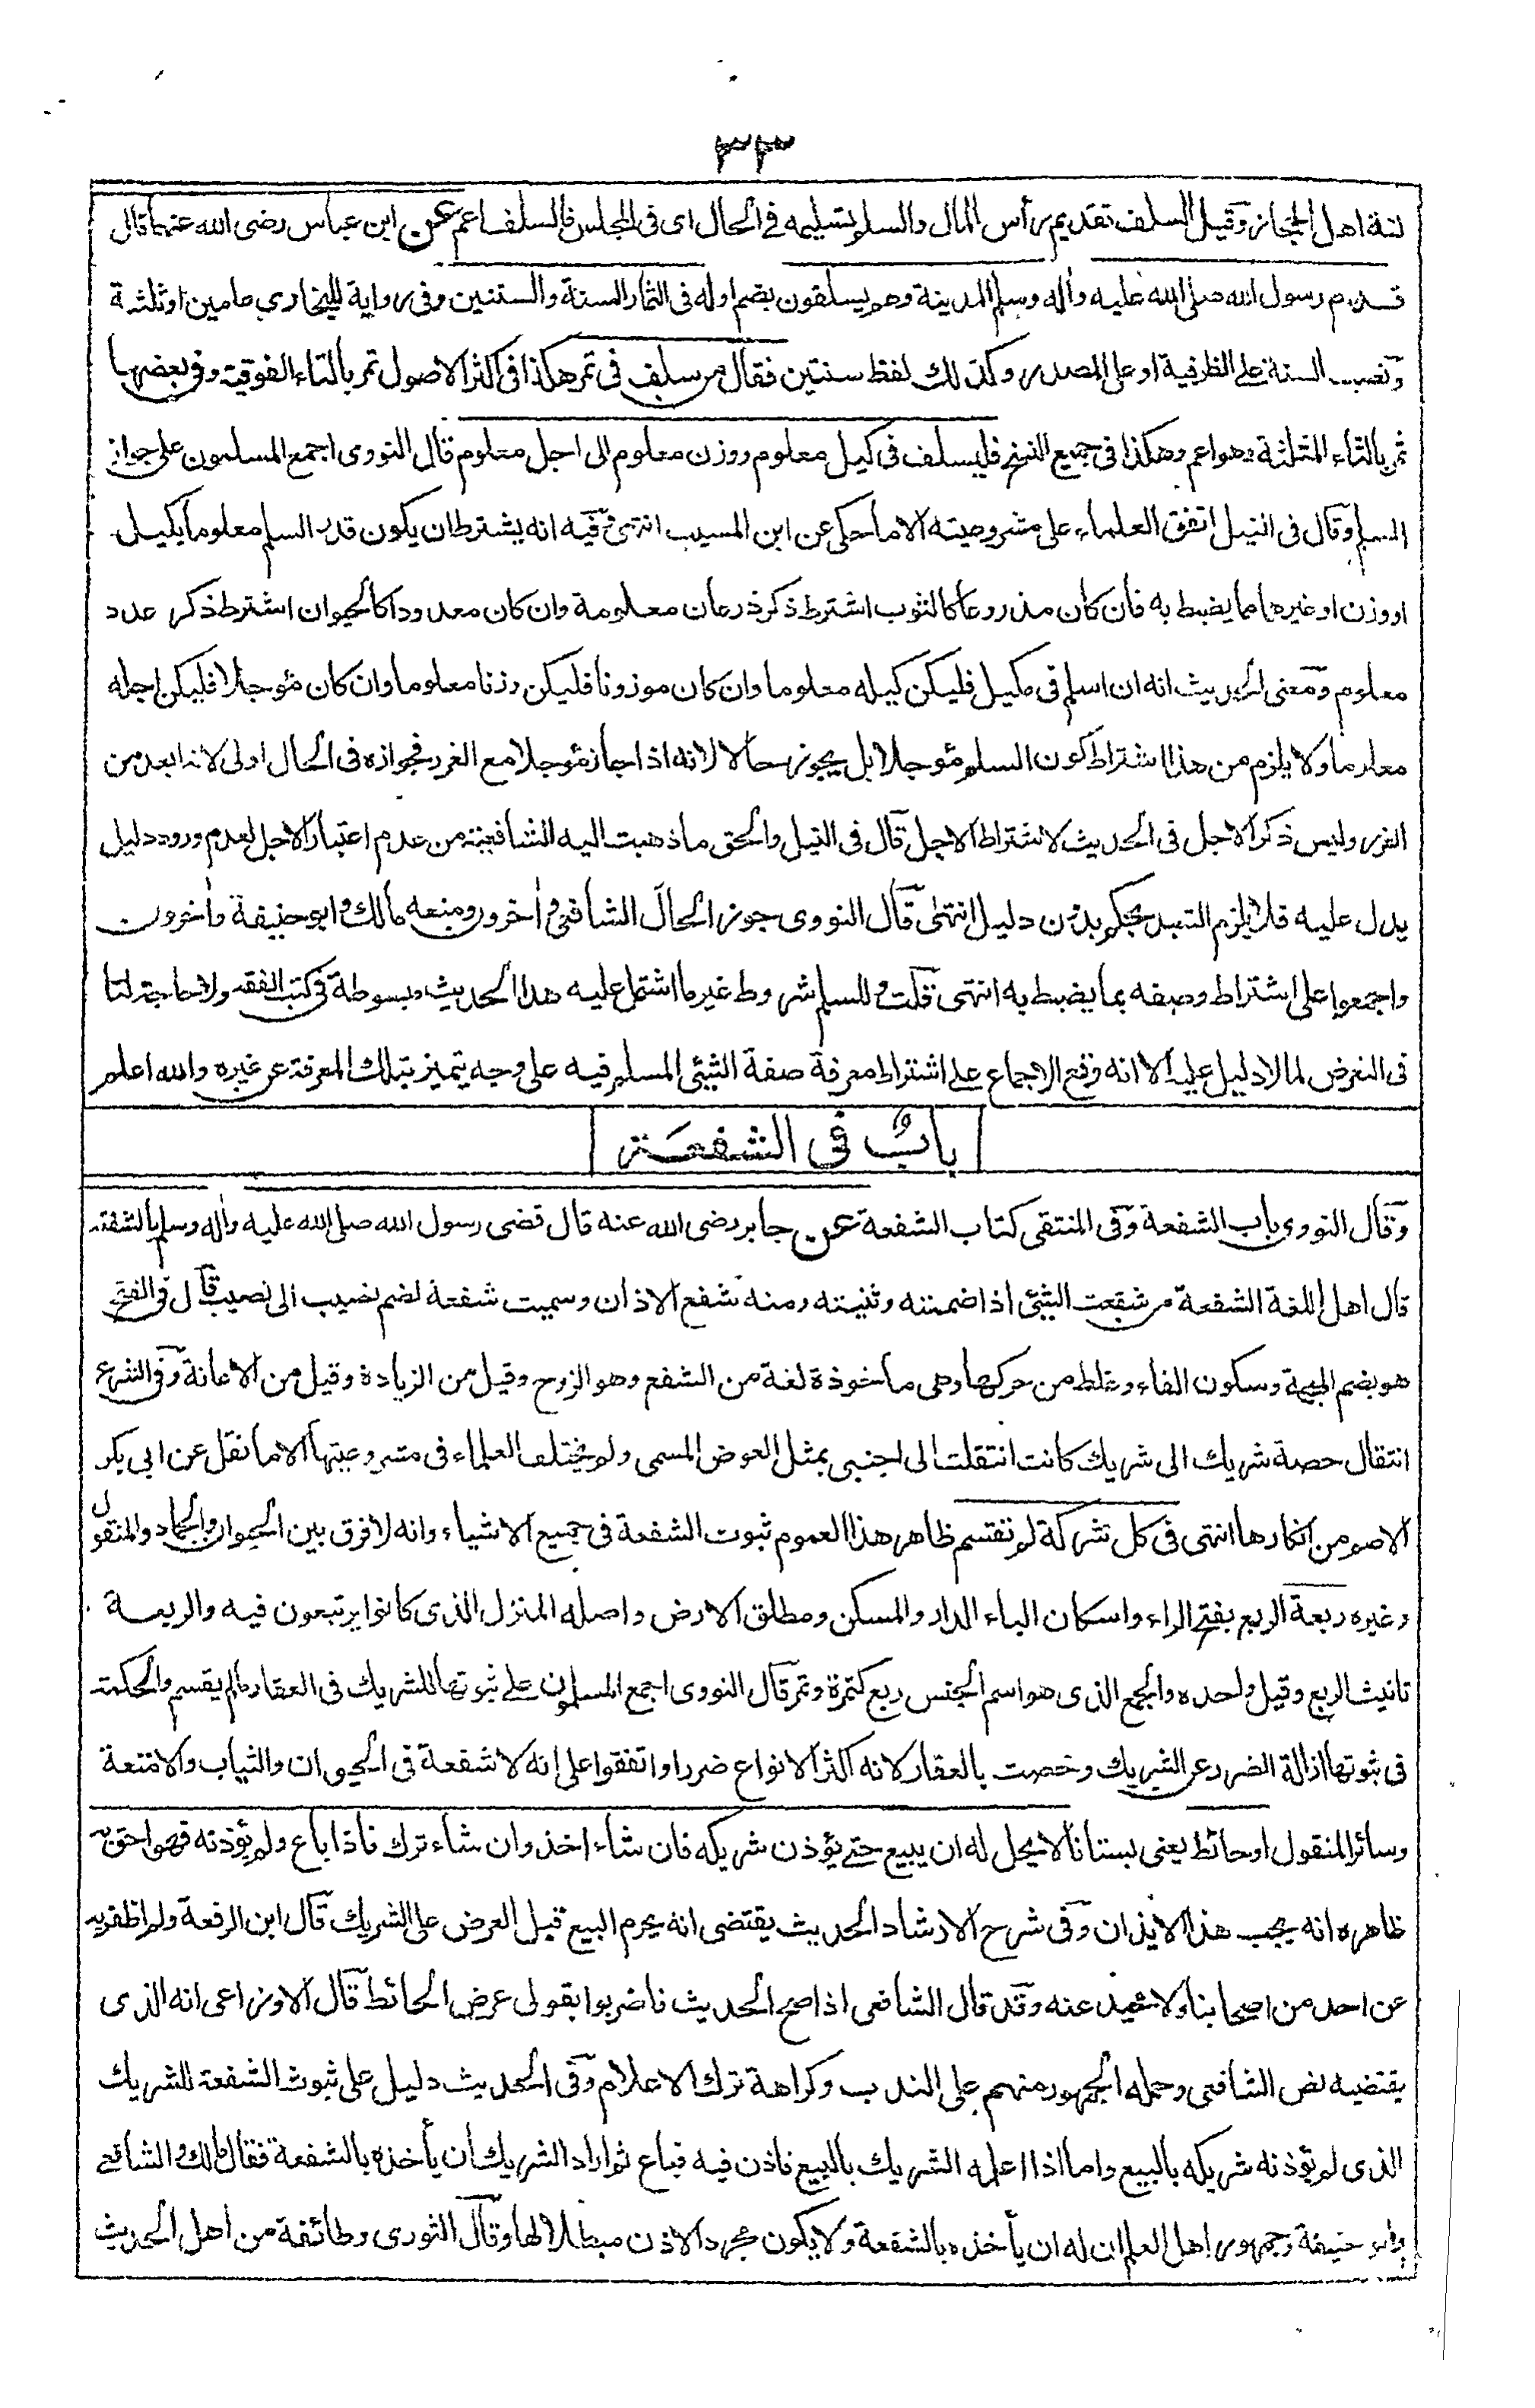 ٣٣
لغة اهل الحجاز وقيل السلف تقديم رأس المال والسلم تسليمه فى الحال اى فى المجلس فالسلف اعم عن ابن عباس رضى الله عنهما قال
قدم رسول الله صلى الله عليه وأله وسلم المدينة وهم يسلفون بضم اوله فى الثمار السنة والسنتين وفى رواية للبخارى عامين او ثلثة
ونصب السنة على الظرفية او على المصدر وكذلك لفظ سنتين فقال من سلف فى تمر هكذا فى اكثر الاصول تمر بالتاء الفوقية وفى بعضها
ثمر بالثاء المثلثة وهو اعم وهكذا فى جميع النسخ فليسلف فى كيل معلوم ووزن معلوم الى اجل معلوم قال النووى اجمع المسلمون على جواز
السلم وقال فى النيل اتفق العلماء على مشروعيته الا ما حكى عن ابن المسيب انتهى وفيه انه يشترط ان يكون قدر السلم معلوما بكيل
او وزن او غيرهما مما يضبط به فان كان مذروعا كالثوب اشترط ذكر ذرعان معلومة وان كان معدودا كالحيوان اشترط ذكر عدد
معلوم ومعنى الحديث انه ان اسلم فى مكيل فليكن كيله معلوما وان كان موزونا فليكن وزنا معلوما وان كان مؤجلا فليكن اجله
معلوما ولا يلزم من هذا اشتراط كون السلم مؤجلا بل يجوز حالا لانه اذا جاز مؤجلا مع الغرر فجوازه فى الحال اولى لانه ابعد من
الغرر وليس ذكر الاجل فى الحديث لاشتراط الاجل قال فى النيل والحق ما ذهبت اليه الشافعية من عدم اعتبار الاجل لعدم ورود دليل
يدل عليه فلا يلزم التعبد بحكم بدون دليل انتهى قال النووى جوز الحال الشافعى وأخرون ومنعه مالك وابو حنيفة وأخرون
واجمعوا على اشتراط وصفه بما يضبط به انتهى قلت وللسلم شروط غير ما اشتمل عليه هذا الحديث مبسوطة فى كتب الفقه ولا حاجة لنا
فى التعرض لما لا دليل عليه الا انه وقع الاجماع على اشتراط معرفة صفة الشيئ المسلم فيه على وجه يتميز بتلك المعرفة عن غيره والله اعلم
باب فى الشفعة
وقال النووى باب الشفعة وفى المنتقى كتاب الشفعة عن جابر رضى الله عنه قال قضى رسول الله صلى الله عليه وأله وسلم بالشفعة
قال اهل اللغة الشفعة من شفعت الشيئ اذا ضممته وثنيته ومنه شفع الاذان وسميت شفعة لضم نصيب الى نصيب قال فى الفتح
هو بضم المعجمة وسكون الفاء وغلط من حركها وهى مأخوذة لغة من الشفع وهو الزوج وقيل من الزيادة وقيل من الاعانة وفى الشرع
انتقال حصة شريك الى شريك كانت انتقلت الى اجنبى بمثل العوض المسمى ولم يختلف العلماء فى مشروعيتها الا ما نقل عن ابى بكر
الاصم من انكارها انتهى فى كل شركة لم تقتسم ظاهر هذا العموم ثبوت الشفعة فى جميع الاشياء وانه لا فرق بين الحيوان والجماد والمنقول
وغيره ربعة الربع بفتح الراء واسكان الباء الدار والمسكن ومطلق الارض واصله المنزل الذى كانوا يرتبعون فيه والربعة
تانيث الربع وقيل واحده والجمع الذى هو اسم الجنس ربع كتمرة وتمر قال النووى اجمع المسلمون على ثبوتها للشريك فى العقار ما لم يقسم والحكمة
فى ثبوتها ازالة الضرر عن الشريك وخصت بالعقار لانه اكثر الانواع ضررا واتفقوا على انه لا شفعة فى الحيوان والثياب والامتعة
وسائر المنقول او حائط يعنى بستانا لا يحل له ان يبيع حتى يؤذن شريكه فان شاء اخذ وان شاء ترك فاذا باع ولم يؤذنه فهو احق به
ظاهره انه يجب هذا الايذان وفى شرح الارشاد الحديث يقتضى انه يحرم البيع قبل العرض على الشريك قال ابن الرفعة ولم اظفر به
عن احد من اصحابنا ولا محيد عنه وقد قال الشافعى اذا صح الحديث فاضربوا بقولى عرض الحائط قال الاوزاعى انه الذى
يقتضيه نص الشافعى وحمله الجمهور منهم على الندب وكراهة ترك الاعلام وفى الحديث دليل على ثبوت الشفعة للشريك
الذى لم يؤذنه شريكه بالبيع واما اذا اعلمه الشريك بالبيع فاذن فيه فباع ثم اراد الشريك ان يأخذه بالشفعة فقال مالك والشافعى
وابو حنيفة وجمهور اهل العلم ان له ان يأخذه بالشفعة ولا يكون مجرد الاذن مبطلا لها وقال الثورى وطائفة من اهل الحديث